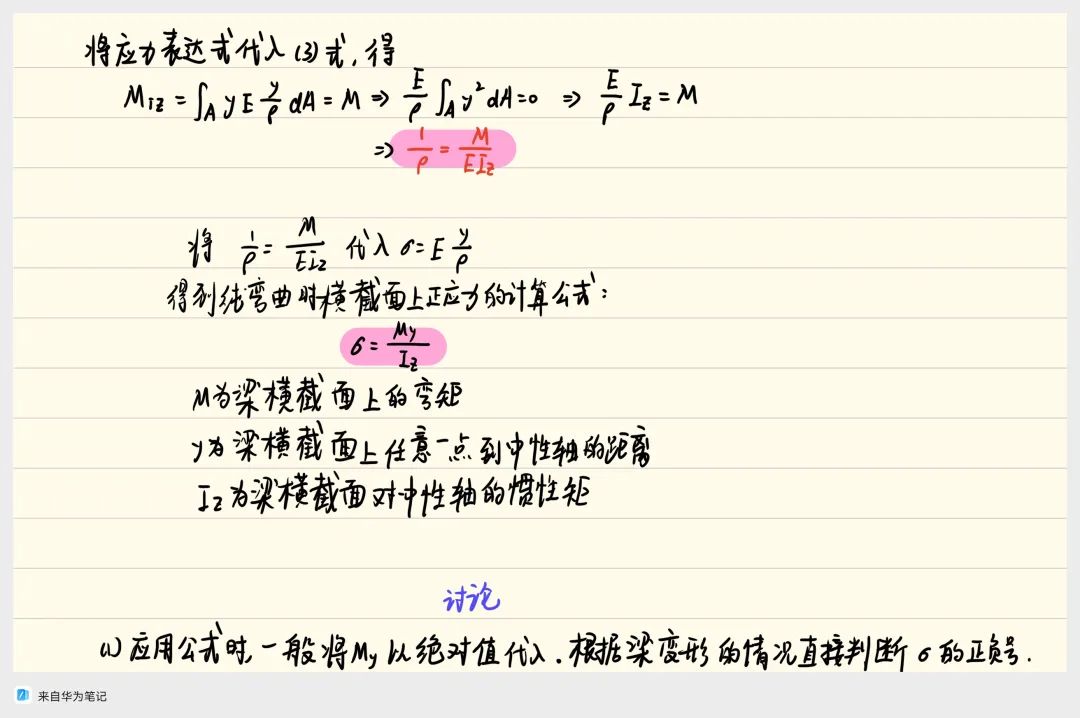 将应力表达式代入(3)式,得
M_{iz} = ∫_A y E y/ρ dA = M ⇒ E/ρ ∫_A y² dA = 0 ⇒ E/ρ I_z = M
⇒ 1/ρ = M/EI_z
将 1/ρ = M/EI_z 代入 σ = E y/ρ
得到纯弯曲时横截面上正应力的计算公式:
σ = My/I_z
M为梁横截面上的弯矩
y为梁横截面上任意一点到中性轴的距离
I_z为梁横截面对中性轴的惯性矩
讨论
(1) 应用公式时,一般将My以绝对值代入.根据梁变形的情况直接判断σ的正负号.
来自华为笔记